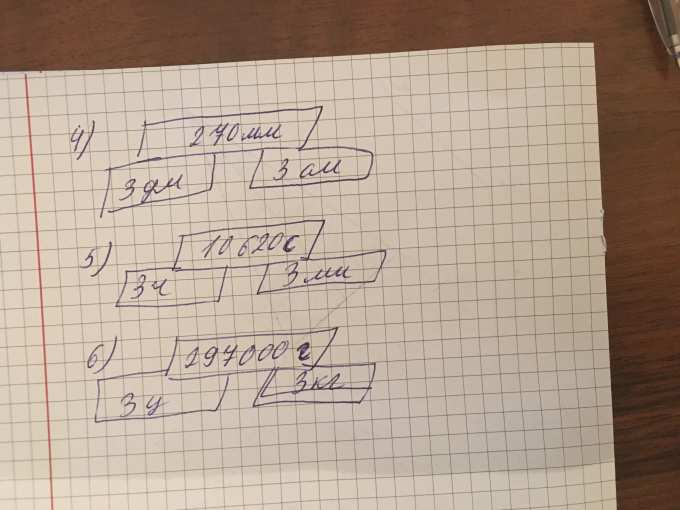 4)
270мм
3дм 3 см
5)
10620с
3ч 3 мин
6)
297000 г
3 ц 3кг